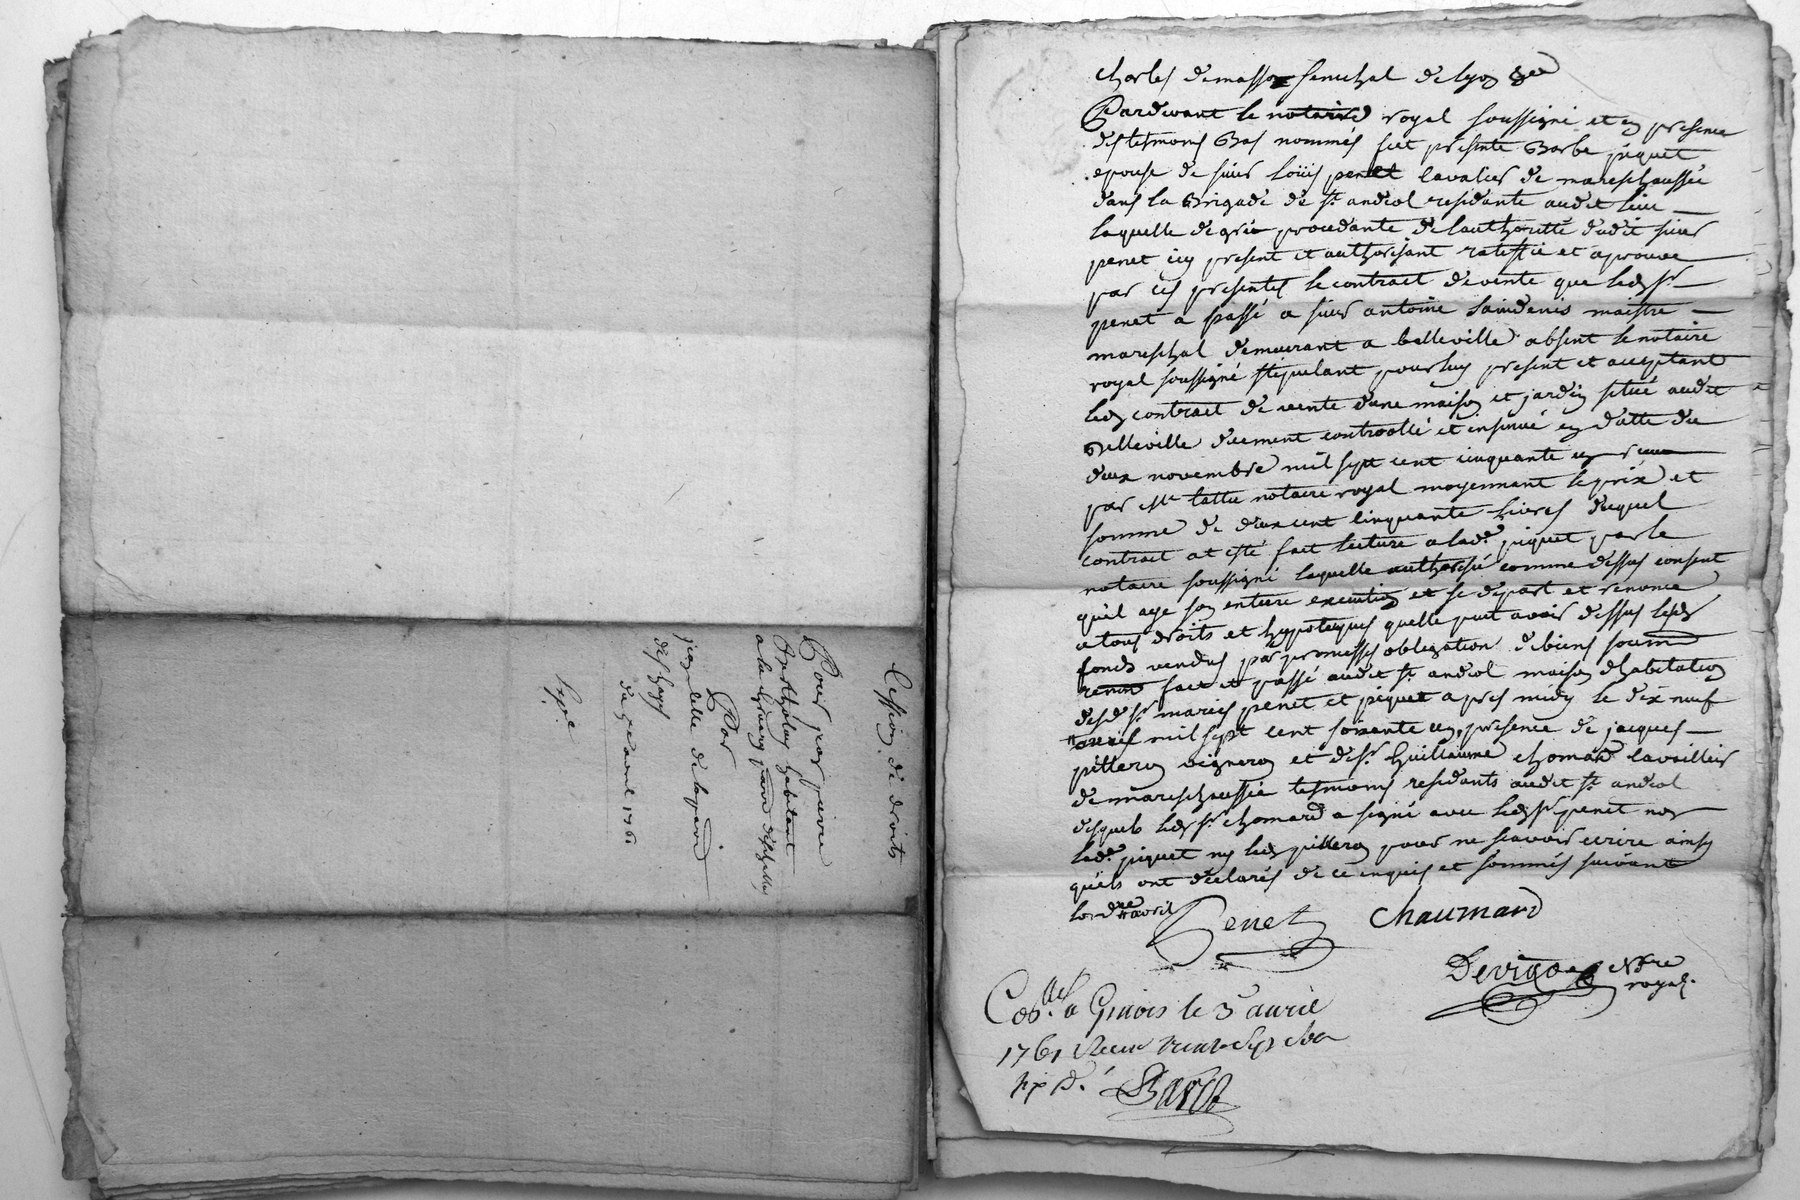 Cession de droits
Pour par pierre
Berthelay habitant
a la
Par
jean
du 7e avril 1760
Charles demasso senechal de lyon &ca
Pardevant le notaire royal soussigné et en presence
des tesmoins Bas nommés fut presente Barbe piquet
epouse de sieur Loüis penet cavalier de mareschaussée
dans la Brigade de st. andeol residante audit lieu
laquelle de gré procedante de lauthorité dudit sieur
penet icy present et authorisant ratiffie et aprouve
par ces presentes le contract devente que led sr.
penet a passé a sieur antoine saindenis maistre
mareschal demeurant a belleville absent le notaire
royal soussigné stipulant pour luy present et aceptant
led contract de vente dune maison et jardin situé audit
Belleville duement controollé et insinué en datte du
deux novembre mil sept cent cinquante un receu
par Me tattu notaire royal moyennant le prix et
somme de deux cent cinquante livres duquel
contract at esté fait lecture a lade. piquet par le
notaire soussigné laquelle authorisée comme dessus consent
quil aye son entiere execution et se depart et renonce
a tous droits et hypoteques quelle put avoir dessus lesd
fonds vendus par promesses obligation de biens soumis
renon fait et passé audit st. andeol maison dhabitation
desd sr. mariés penet et piquet apres midy le dix neuf
mil sept cent soixante un, presence de jacques
pilleron vigneron et de sr. Guillaume chomard cavallier
de mareschaussée tesmoins residants audit st. andeol
desquels led sr. chomard a signé avec led sr. penet non
lade. piquet ny led pilleron pour ne scavoir ecrire ainsy
quils ont declarés de ce enquis et sommés suivant
lordre # avril
Penet Chaumard
Nre
royal.
a Givors le 3 avril
1761 Receu
six d.